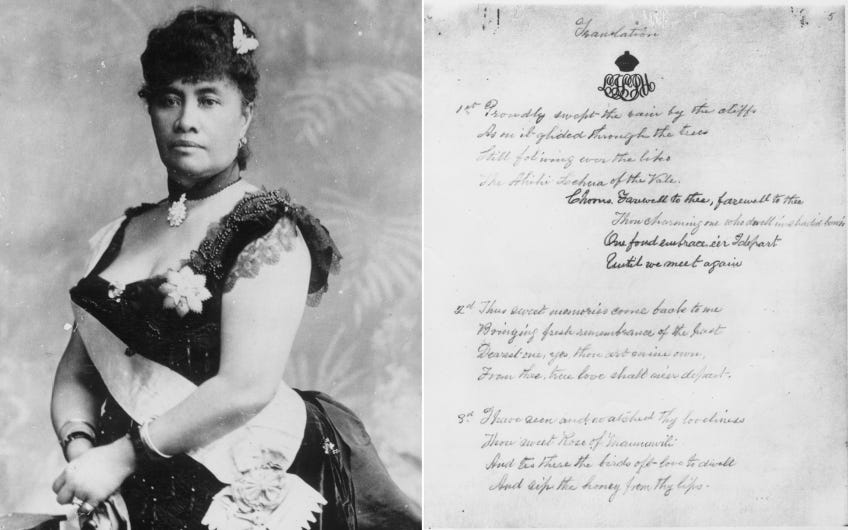 5
Translation
1st Proudly swept the rain by the cliffs
As on it glided through the trees
Still fol'wing ever the liko
The Ahihi Lehua of the Vale.
Chorus. Farewell to thee, farewell to thee
Thou charming one who dwell in shaded bow'rs
One fond embrace e'er I depart
Until we meet again
2d Thus sweet memories come back to me
Bringing fresh remembrance of the past
Dearest one, yes, thou art mine own,
From thee, true love shall ne'er depart.
3d I have seen and watched thy loveliness
Thou sweet Rose of Maunawili
And tis there the birds oft love to dwell
And sip the honey from thy lips.